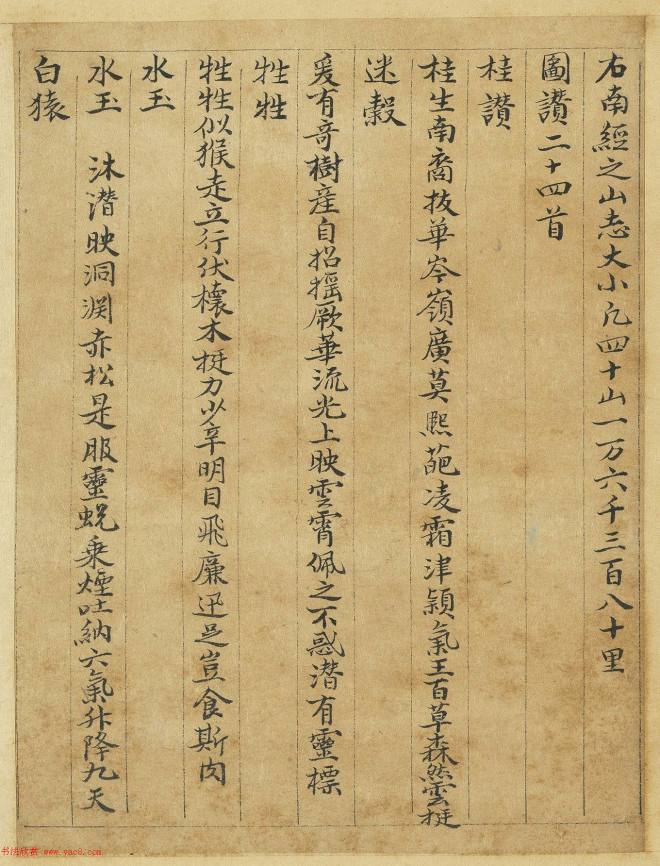 右南經之山志大小凡四十山一万六千三百八十里
圖讃二十四首
桂讃
桂生南裔抜華岑嶺廣莫熙葩凌霜津穎氣王百草森然雲挺
迷糓
爰有竒樹産自招摇厥華流光上映雲霄佩之不惑潜有靈標
牲牲
牲牲似猴走立行伏櫰木挺力少辛明目飛廉迅足豈食斯肉
水玉
水玉 沐潜映洞渊赤松是服靈蛻乗煙吐納六氣升降九天
白猿
书法欣赏 www.yac8.com